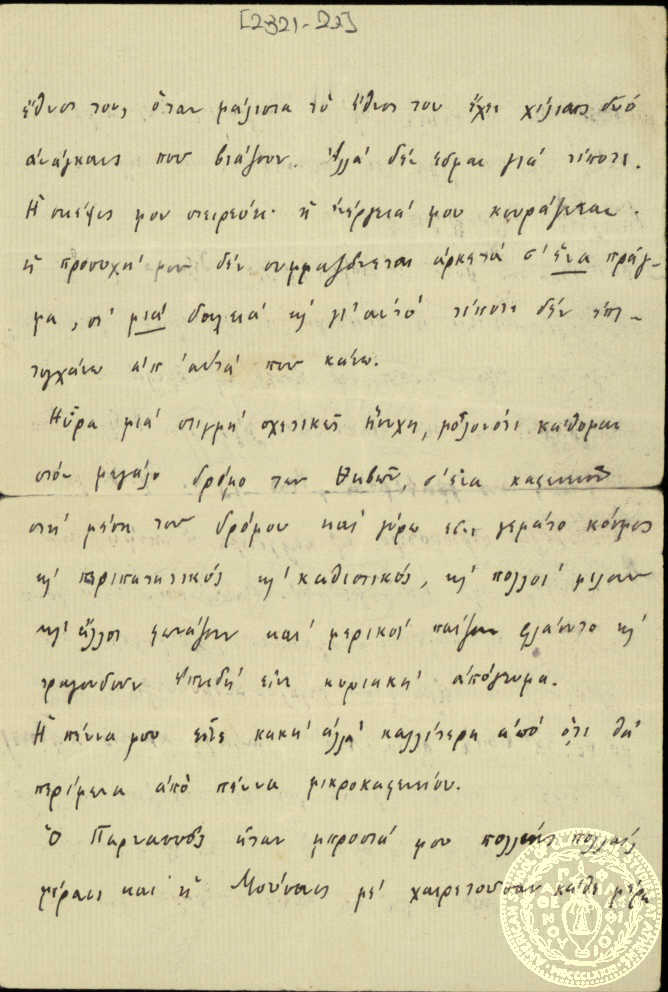 [2321-22]
ἔθνος τους ὅταν μάλιστα τὸ ἔθνος του ἔχει χίλιας δυό
ἀνάγκαις που βιάζουν. Ἀλλὰ δὲν εἶμαι γιὰ τίποτε.
Ἡ σκέψις μου στειρεύει· ἡ ἐνέργειά μου κουράζεται.
ἡ προσοχή μου δὲν συμμαζεύεται ἀρκετὰ σ' ἕνα πράγ-
μα, σὲ μιὰ δουλειὰ κι' γι' αὐτὸ τίποτε δὲν ἐπι-
τυχάνω ἀπ' αὐτὰ που κάνω.
Ηὗρα μιὰ στιγμὴ σχετικῶς ἥσυχη, μολονότι κάθομαι
στὸν μεγάλο δρόμο των Θηβῶν, σ' ἕνα καφενεῖο
στὴ μέση του δρόμου καὶ γύρω γεμάτο κόσμος
κι' περιπατητικός κι' καθιστικός, κι' πολλοὶ μιλουν
κι' ἄλλοι φωνάζουν καὶ μερικοὶ παίζουν φλάουτο κι'
τραγουδουν ἐπειδὴ εἶνε κυριακὴ ἀπόγευμα.
Ἡ πέννα μου εἶνε κακὴ ἀλλὰ καλλίτερη ἀπὸ ὅτι θὰ
περίμενα ἀπὸ πέννα μικροκαφενείου.
Ὁ Παρνασσὸς ἦταν μπροστά μου πολλαὶς πολλαὶς
μέραις καὶ ἡ με χαιρετουσαν κάθε μέρα